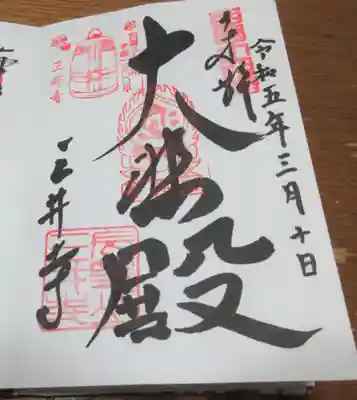 奉拝
令和五年三月十日
大悲殿
三井寺